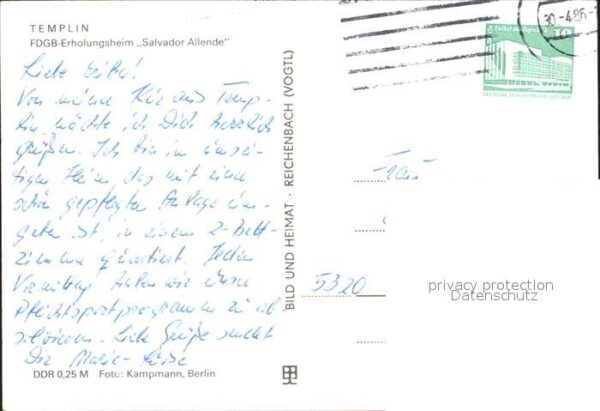 TEMPLIN
FDGB-Erholungsheim „Salvador Allende"
Liebe
Von meine Kur aus Temp-
lin möchte ich Dich herzlich
grüßen. Ich bin in
tigen Heim, das mit eine
schön gepflegten Anlage um-
geben ist, in einem 2-Bett-
zimmer quartiert. Jeden
Vormittag haben wir unser
Pflichtsportprogramm zu ab-
solvieren. Liebe Grüße sendet
Dir Marie-
DDR 0,25 M Foto: Kampmann, Berlin
BILD UND HEIMAT · REICHENBACH (VOGTL)
30.4.86
10
Frau
5320
privacy protection
Datenschutz